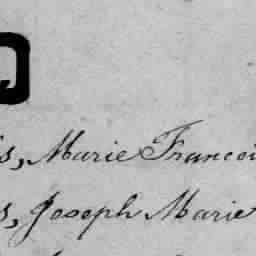 s, Marie Francoi
s, Joseph Marie